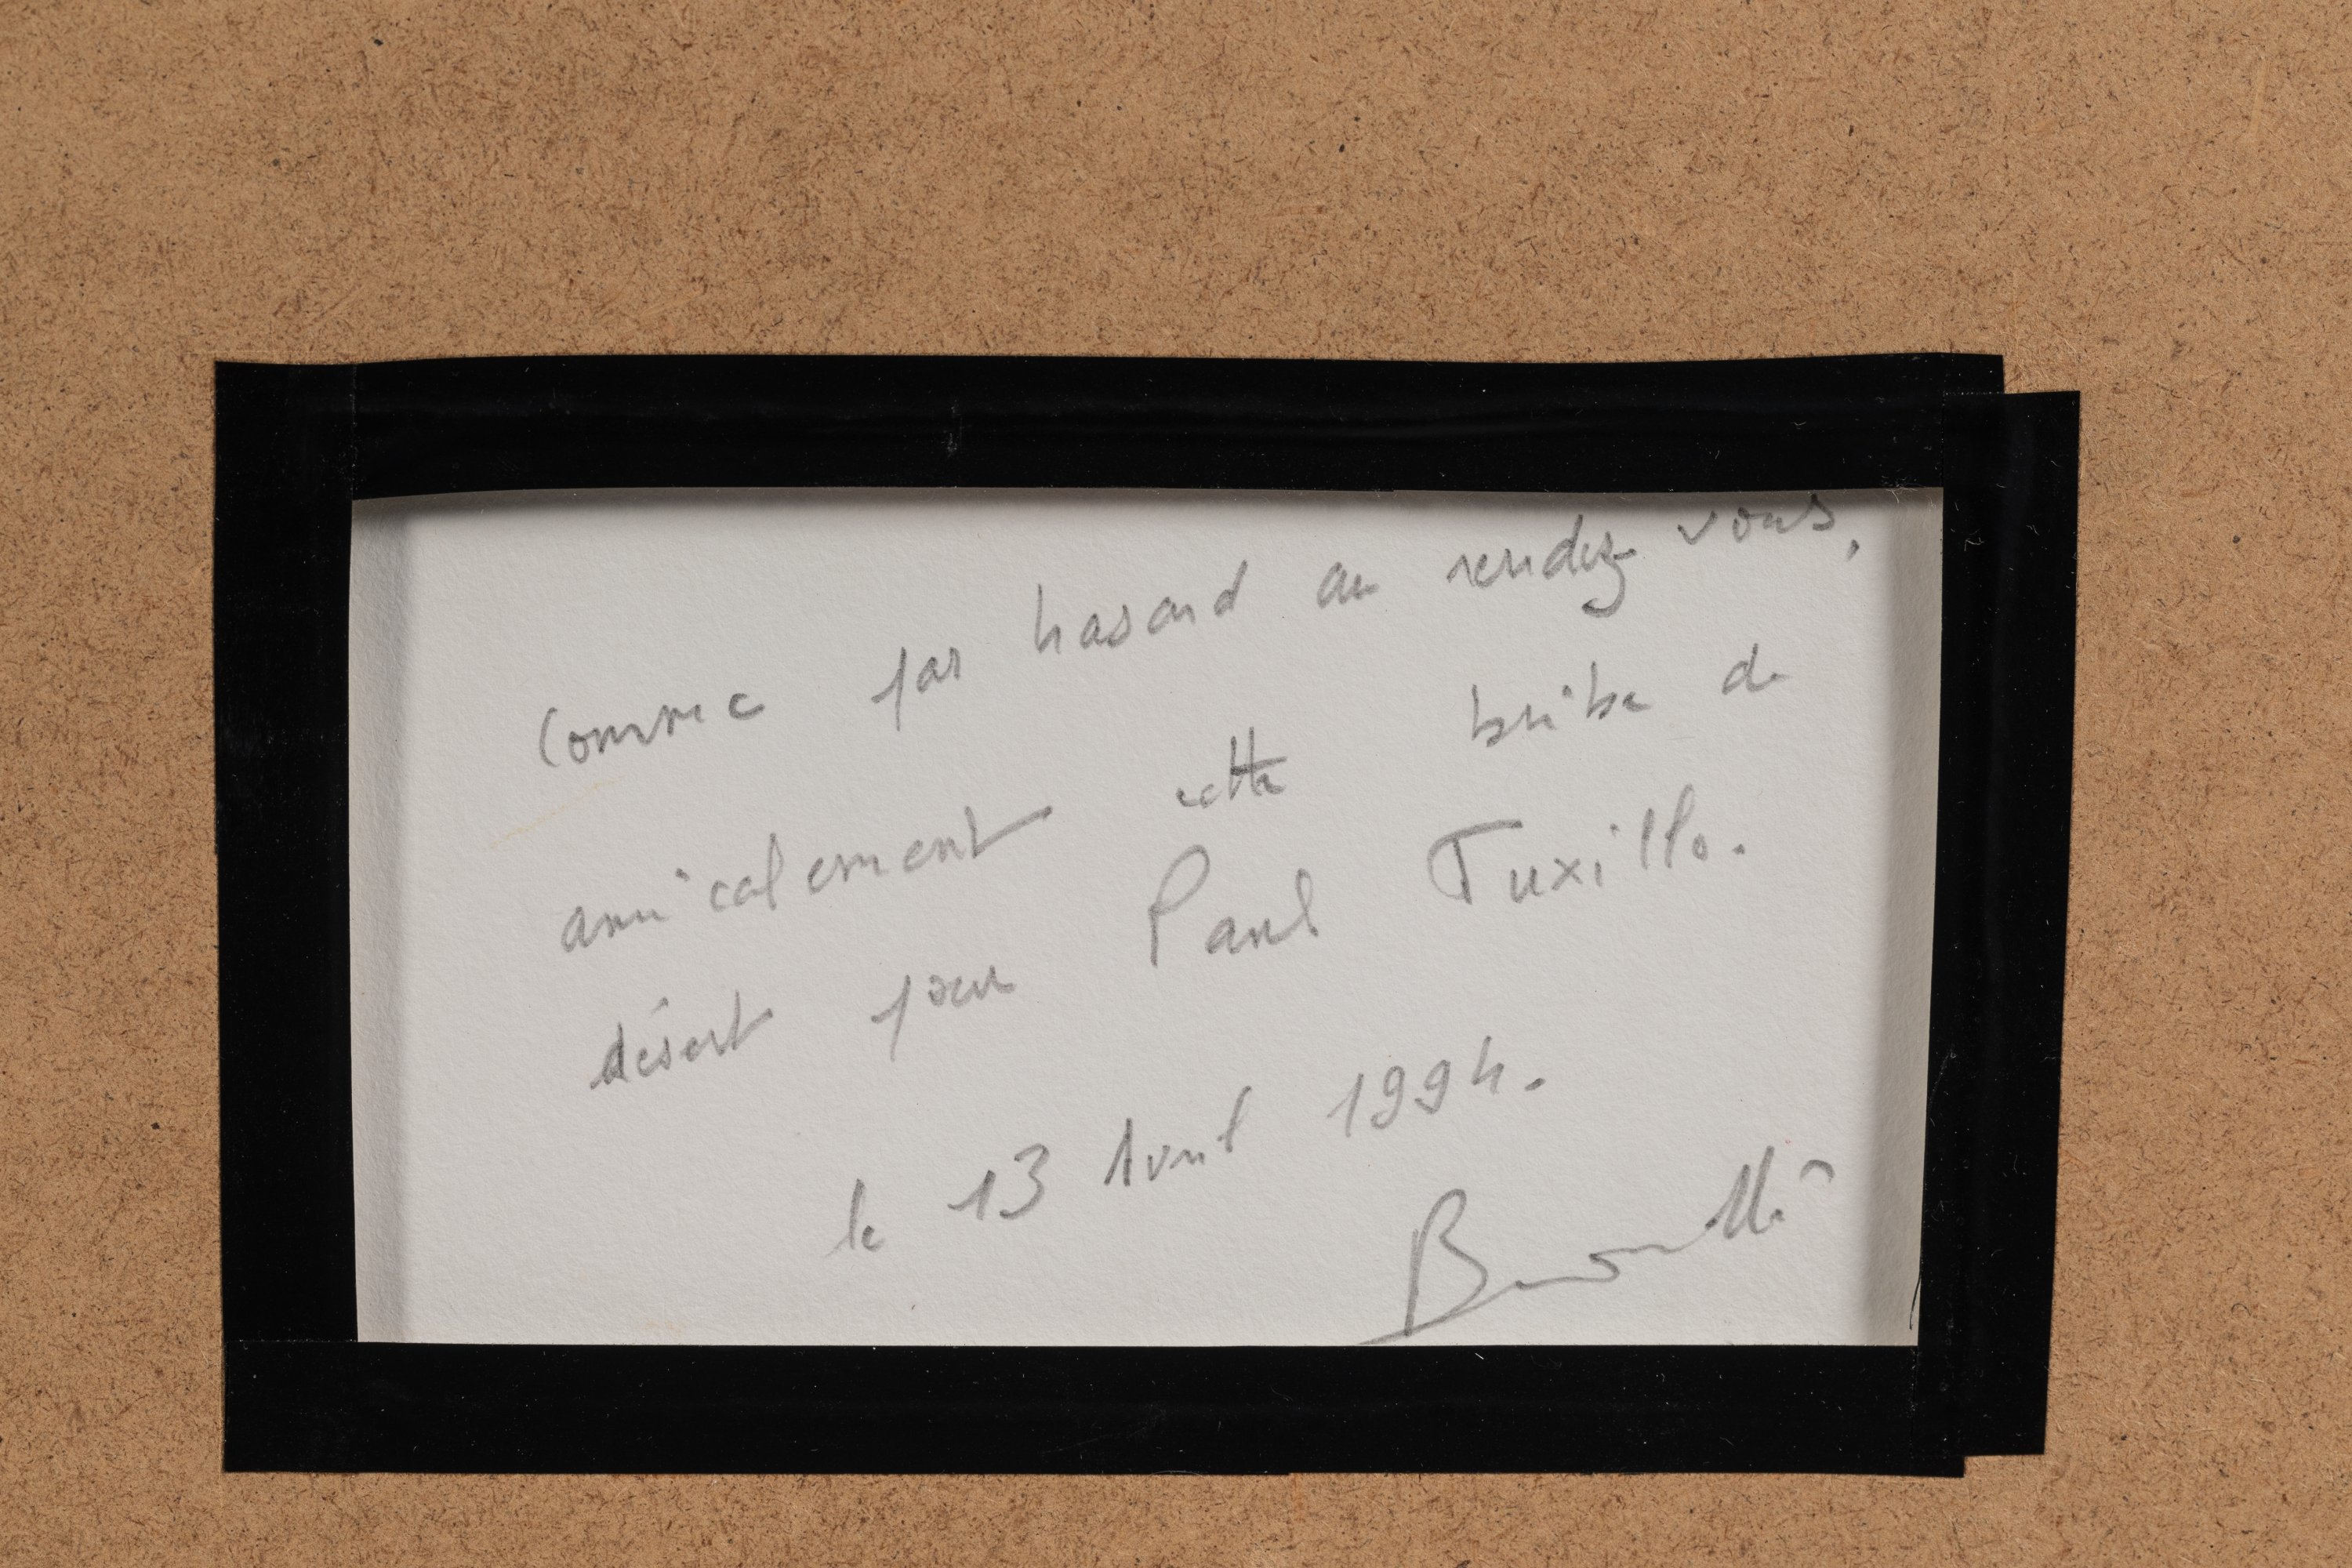 Comme par hasard au rendez vous,
amicalement cette bribe de
désert pour Paul Tuxillo.
le 13 Avril 1994.